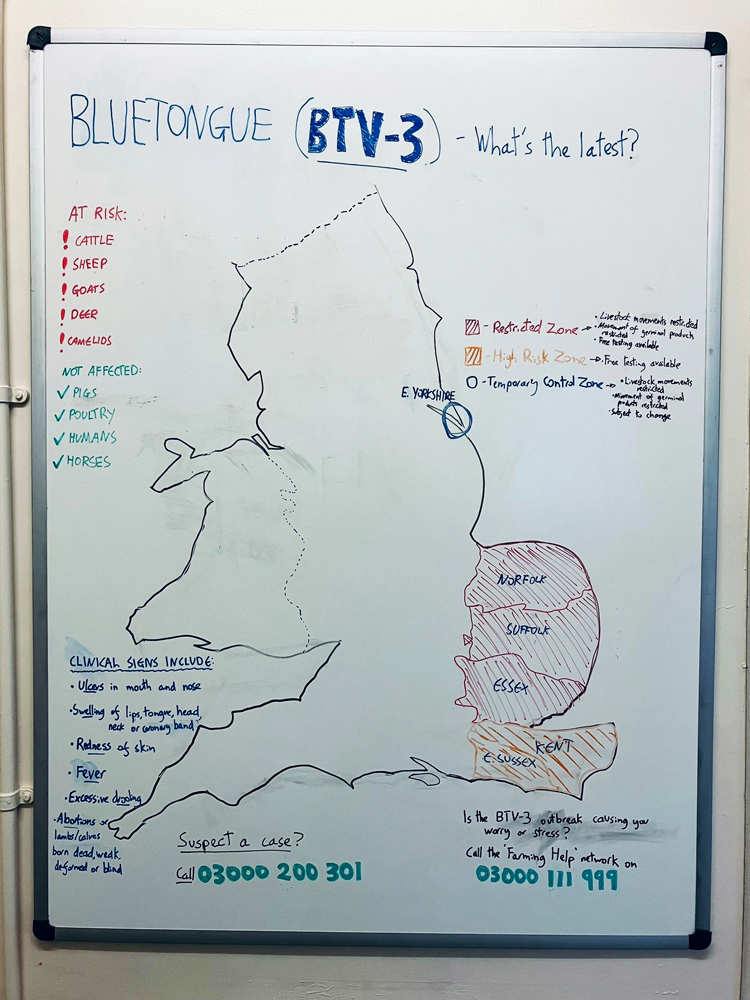 BLUETONGUE (BTV-3) - What's the latest?
AT RISK:
! CATTLE
! SHEEP
! GOATS
! DEER
! CAMELIDS
NOT AFFECTED:
✓ PIGS
✓ POULTRY
✓ HUMANS
✓ HORSES
- Restricted Zone →
• Livestock movements restricted
• Movement of germinal products
restricted
• Free testing available
- High Risk Zone → • Free testing available
- Temporary Control Zone →
• Livestock movements
restricted
• Movement of germinal
products restricted
• Subject to change
E. YORKSHIRE
NORFOLK
SUFFOLK
ESSEX
KENT
E. SUSSEX
CLINICAL SIGNS INCLUDE:
• Ulcers in mouth and nose
• Swelling of lips, tongue, head,
neck or coronary band
• Redness of skin
• Fever
• Excessive drooling
• Abortions or
lambs/calves
born dead, weak
deformed or blind
Suspect a case?
Call 03000 200 301
Is the BTV-3 outbreak causing you
worry or stress?
Call the 'Farming Help' network on
03000 111 999